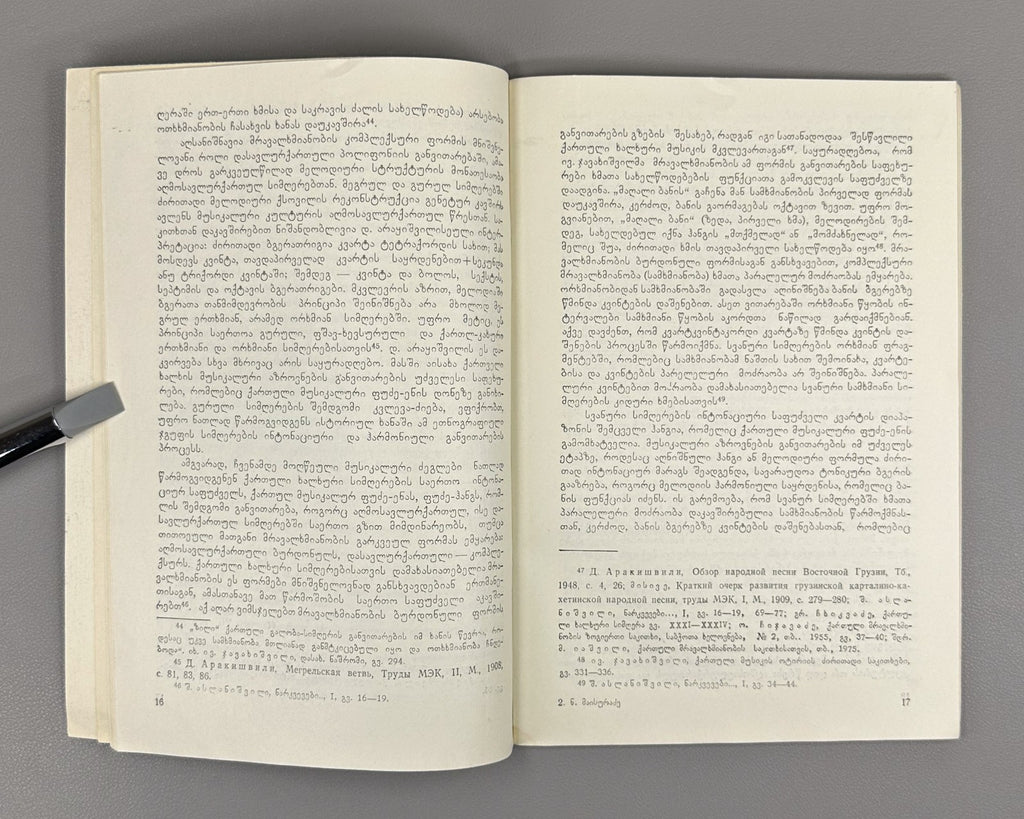 ღერაში ერთ-ერთი ხმისა და საკრავის ძალის სახელწოდება) არსებობა
ოთხხმიანობის ჩასახვის ხანას დაუკავშირა⁴⁴.
აღსანიშნავია მრავალხმიანობის კომპლექსური ფორმის მნიშვნე-
ლოვანი როლი დასავლურქართული პოლიფონიის განვითარებაში, ამა-
ვე დროს გარკვეულწილად მელოდიური სტრუქტურის მონათესაობა
აღმოსავლურქართულ სიმღერებთან. მეგრულ და გურულ სიმღერებში
ძირითადი მელოდიური ქსოვილის რეკონსტრუქცია გენეტურ კავშირს
ავლენს მუსიკალური კულტურის აღმოსავლურქართულ წრესთან. სა-
კითხთან დაკავშირებით ნიშანდობლივია დ. არაყიშვილისეული ინტერ-
პრეტაცია: ძირითადი ბგერათრიგია კვარტა ტეტრაქორდის სახით; მას
მოსდევს კვინტა, თავდაპირველად კვარტის საყრდენებით+სეკუნდა
ანუ ტრიქორდი კვინტაში; შემდეგ — კვინტა და ბოლოს, სექსტის,
სეპტიმის და ოქტავის ბგერათრიგები. მკვლევრის აზრით, მელოდიაში
ბგერათა თანმიმდევრობის პრინციპი შეინიშნება არა მხოლოდ მე-
გრულ ერთხმიან, არამედ ორხმიან სიმღერებში. უფრო მეტიც, ეს
პრინციპი საერთოა გურული, ფშავ-ხევსურული და ქართლ-კახური
ერთხმიანი და ორხმიანი სიმღერებისათვის⁴⁵. დ. არაყიშვილის ეს და-
კვირვება სხვა მხრივაც არის საყურადღებო. მასში აისახა ქართველი
ხალხის მუსიკალური აზროვნების განვითარების უძველესი საფეხუ-
რები, რომლებიც ქართული მუსიკალური ფუძე-ენის დონეზე განიხი-
ლება. გურული სიმღერების შემდგომი კვლევა-ძიება, ვფიქრობთ,
უფრო ნათლად წარმოგვიდგენს ისტორიულ ხანაში ამ ეთნოგრაფიული
ჯგუფის სიმღერების ინტონაციური და ჰარმონიული განვითარების
პროცესს.
ამგვარად, ჩვენამდე მოღწეული მუსიკალური ძეგლები ნათლად
წარმოგვიდგენენ ქართული ხალხური სიმღერების საერთო ინტონა-
ციურ საფუძველს, ქართულ მუსიკალურ ფუძე-ენას, ფუძე-ჰანგს, რომ-
ლის შემდგომი განვითარება, როგორც აღმოსავლურქართულ, ისე და-
სავლურქართულ სიმღერებში საერთო გზით მიმდინარეობს, თუმცა
თითოეული მათგანი მრავალხმიანობის გარკვეულ ფორმას ემყარება:
აღმოსავლურქართული ბურდონულს, დასავლურქართული — კომპლე-
ქსურს. ქართული ხალხური სიმღერებისათვის დამახასიათებელია მრა-
ვალხმიანობის ეს ფორმები მნიშვნელოვნად განსხვავდებიან ერთმანე-
თისაგან, ამასთანავე მათ წარმოშობის საერთო საფუძველი აკავში-
რებთ⁴⁶. აქ აღარ ვიმსჯელებთ მრავალხმიანობის ბურდონული ფორმის
⁴⁴ „ზილი“ ქართული გალობა-სიმღერის განვითარების იმ ხანის წევრია, რო-
დესაც უკვე სამხმიანობა მთლიანად განმტკიცებული იყო და ოთხხმიანობა ჩნდე-
ბოდა“. იხ. ივ. ჯავახიშვილი, დასახ. ნაშრომი, გვ. 294.
⁴⁵ Д. Аракишвили, Мегрельская ветвь, Труды МЭК, II, М., 1908,
с. 81, 83, 86.
⁴⁶ შ. ასლანიშვილი, ნარკვევები.., I, გვ. 16—19.
16
განვითარების გზების შესახებ, რადგან იგი სათანადოდაა შესწავლილი
ქართული ხალხური მუსიკის მკვლევართაგან⁴⁷. საყურადღებოა, რომ
ივ. ჯავახიშვილმა მრავალხმიანობის ამ ფორმის განვითარების საფეხუ-
რები ხმათა სახელწოდებების ფუნქციათა გამოკვლევის საფუძველზე
დაადგინა. „მაღალი ბანის“ გაჩენა მან სამხმიანობის პირველად ფორმას
დაუკავშირა, კერძოდ, ბანის გაორმაგებას ოქტავით ზევით. უფრო მო-
გვიანებით, „მაღალი ბანი“ (ზედა, პირველი ხმა), მელოდირების შემ-
დეგ, სახელდებულ იქნა ჰანგის „მთქმელად“ ან „მომძახნელად“, რო-
მელიც შუა, ძირითადი ხმის თავდაპირველი სახელწოდება იყო⁴⁸. მრა-
ვალხმიანობის ბურდონული ფორმისაგან განსხვავებით, კომპლექსური
მრავალხმიანობა (სამხმიანობა) ხმათა პარალელურ მოძრაობას ემყარება.
ორხმიანობიდან სამხმიანობაში გადასვლა აღინიშნება ბანის ბგერებზე
წმინდა კვინტების დაშენებით. ასეთ ვითარებაში ორხმიანი წყობის ინ-
ტერვალები სამხმიანი წყობის აკორდთა ნაწილად გარდაიქმნებიან.
აქვე დავძენთ, რომ კვარტკვინტაკორდი კვარტაზე წმინდა კვინტის და-
შენების პროცესში წარმოიქმნა. სვანური სიმღერების ორხმიან ფრაგ-
მენტებში, რომლებიც სამხმიანობამ ნაშთის სახით შემოინახა, კვარტე-
ბისა და კვინტების პარელელური მოძრაობა არ შეინიშნება. პარალე-
ლური კვინტებით მოძრაობა დამახასიათებელია სვანური სამხმიანი სი-
მღერების კიდური ხმებისათვის⁴⁹.
სვანური სიმღერების ინტონაციური საფუძველი კვარტის დიაპა-
ზონის შემცველი ჰანგია, რომელიც ქართული მუსიკალური ფუძე-ენის
გამომხატველია. მუსიკალური აზროვნების განვითარების იმ უძველეს
ეტაპზე, როდესაც აღნიშნული ჰანგი ან მელოდიური ფორმულა ძირი-
თად ინტონაციურ მარაგს შეადგენდა, სავარაუდოა ტონიკური ბგერის
გააზრება, როგორც მელოდიის ჰარმონიული საყრდენისა, რომელიც ბა-
ნის ფუნქციას იძენს. ის გარემოება, რომ სვანურ სიმღერებში ხმათა
პარალელური მოძრაობა დაკავშირებულია სამხმიანობის წარმოქმნას-
თან, კერძოდ, ბანის ბგერებზე კვინტების დაშენებასთან, რომლებიც
⁴⁷ Д. Аракишвили, Обзор народной песни Восточной Грузии, Тб.,
1948, с. 4, 26; მისივე, Краткий очерк развития грузинской карталино-ка-
хетинской народной песни, труды МЭК, I, М., 1909, с. 279—280; შ. ასლა-
ნიშვილი, ნარკვევები..., I, გვ. 16—19, 69—77; გრ. ჩხიკვაძე, ქართუ-
ლი ხალხური სიმღერა გვ. XXXI—XXXIV; ო. ჩიჯავაძე, ქართული მრავალხმი-
ანობის ზოგიერთი საკითხი, საბჭოთა ხელოვნება, № 2, თბ., 1955, გვ. 37—40; შდრ.
მ. იაშვილი, ქართული მრავალხმიანობის საკითხისათვის, თბ., 1975.
⁴⁸ ივ. ჯავახიშვილი, ქართული მუსიკის ისტორიის ძირითადი საკითხები,
გვ. 331—336.
⁴⁹ შ. ასლანიშვილი, ნარკვევები.., I, გვ. 34—44.
2. ნ. მაისურაძე
17